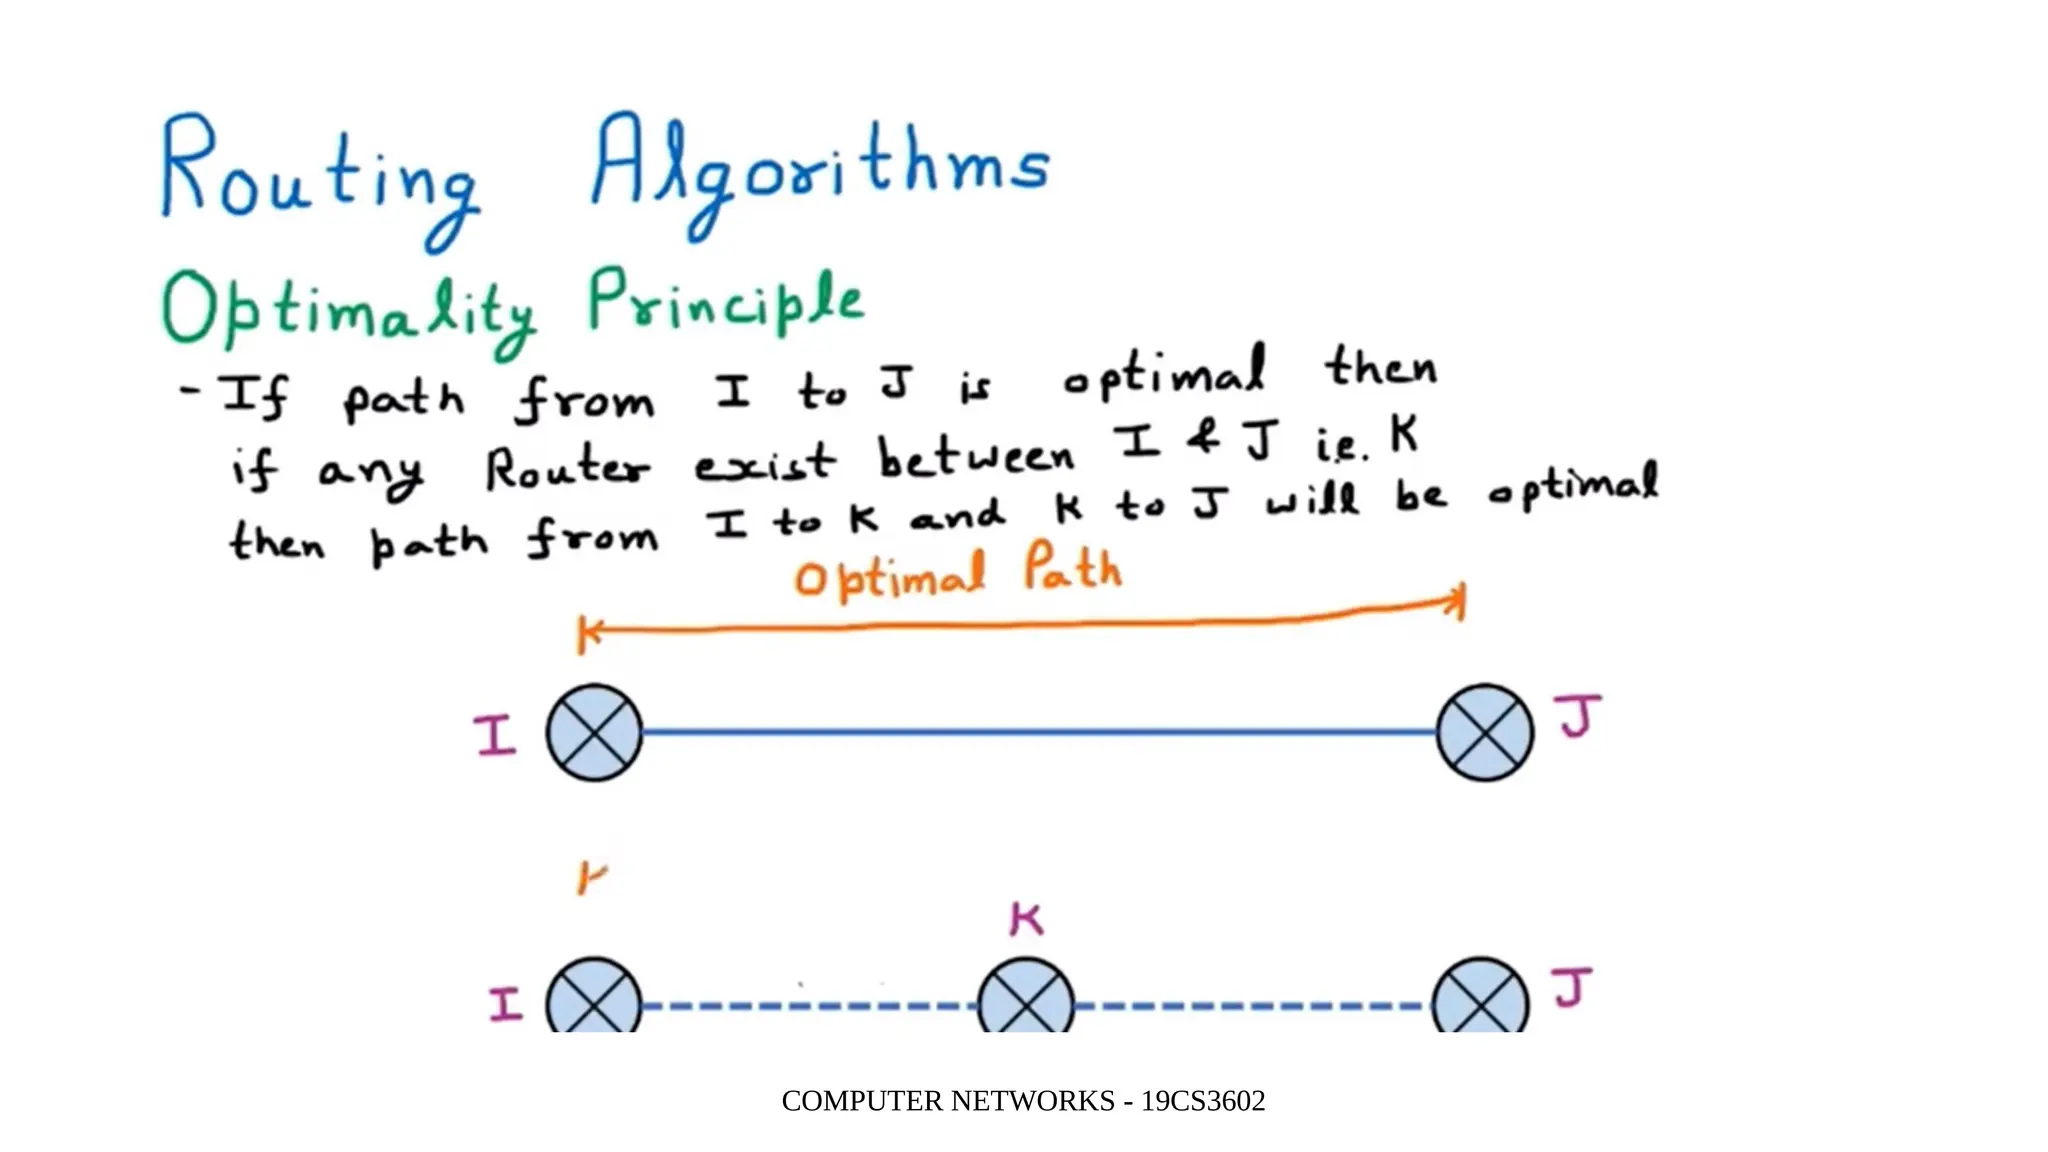 Routing Algorithms
Optimality Principle
- If path from I to J is optimal then
if any Router exist between I & J i.e. K
then path from I to K and K to J will be optimal
Optimal Path
I J
K
I J
COMPUTER NETWORKS - 19CS3602